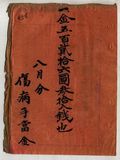 一金五百貳拾六圓参拾八銭也
八月分
傷病手當金